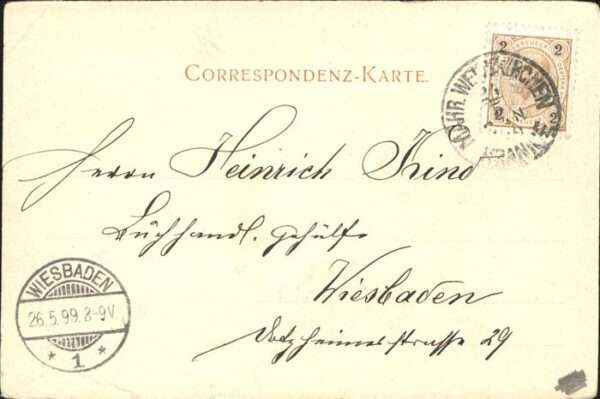 2 2
2 2
CORRESPONDENZ-KARTE.
Herrn Heinrich Kind
Buchhandl. gehülfe
Wiesbaden
Dotzheimerstrasse 29
WIESBADEN
26.5.99.8-9V
* 1 *